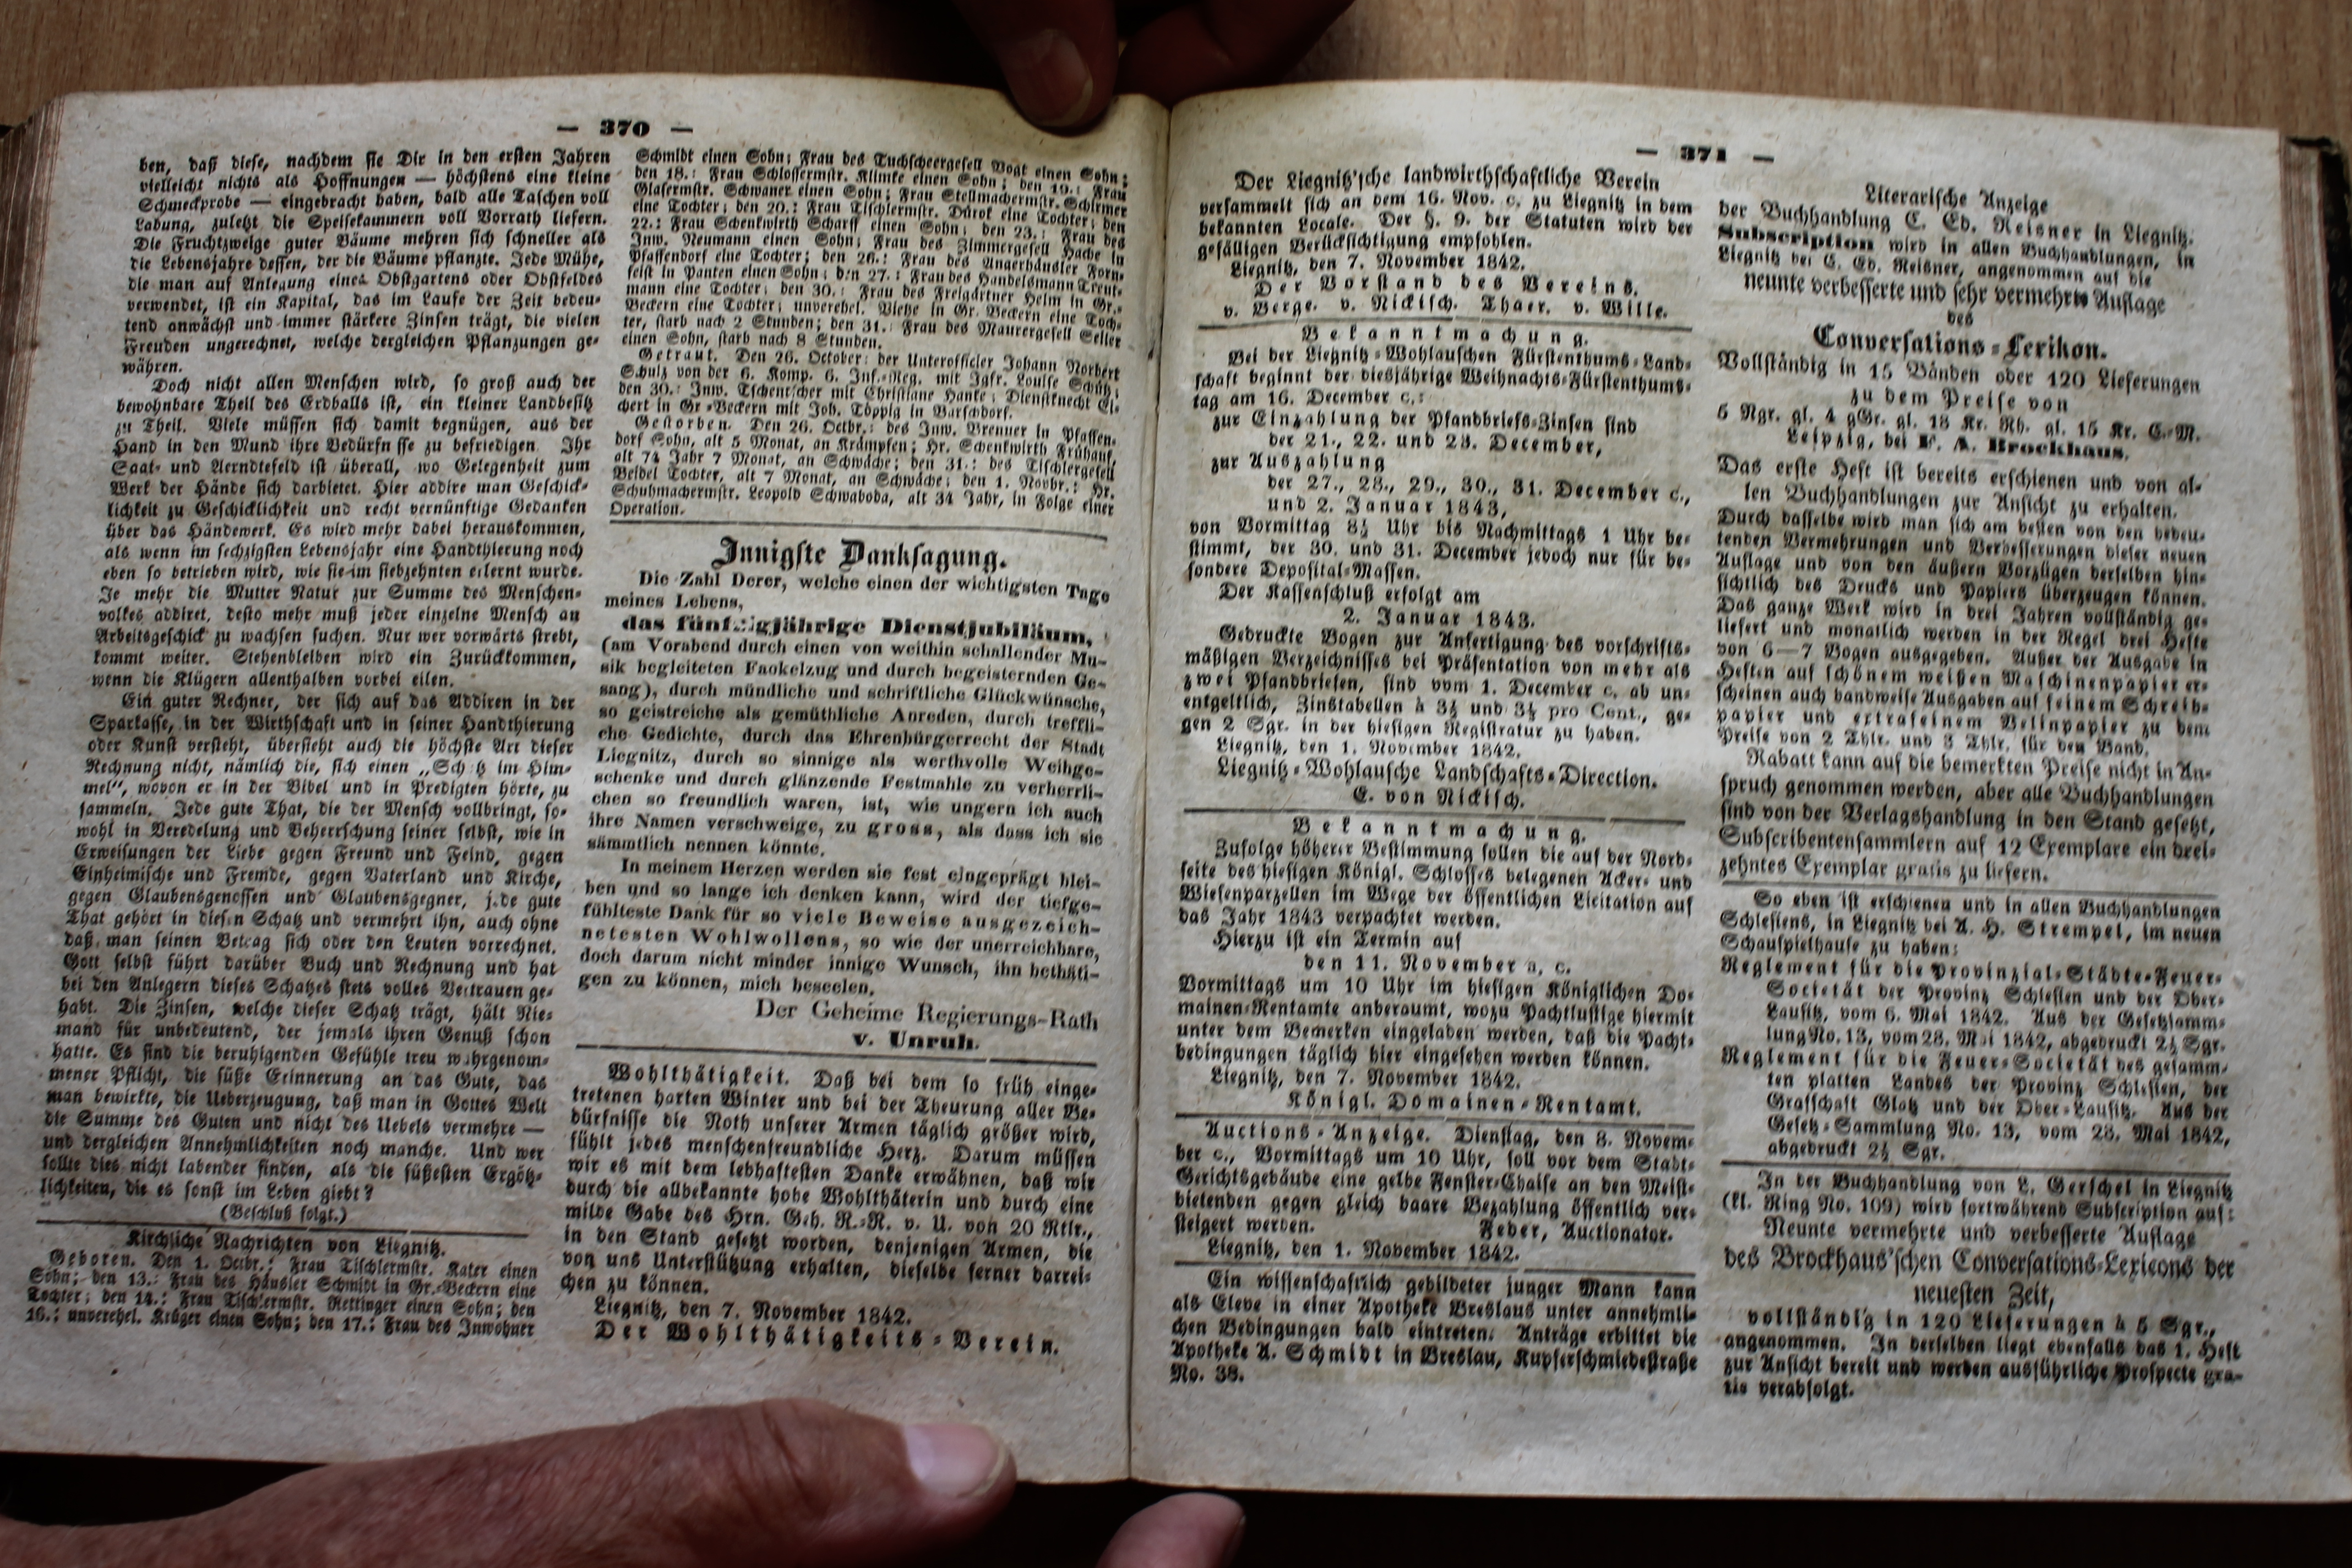 — 370 —
ben, daß diese, nachdem sie Dir in den ersten Jahren
vielleicht nichts als Hoffnungen — höchstens eine kleine
Schmeckprobe — eingebracht haben, bald alle Taschen voll
Labung, zuletzt die Speisekammern voll Vorrath liefern.
Die Fruchtzweige guter Bäume mehren sich schneller als
die Lebensjahre dessen, der die Bäume pflanzte. Jede Mühe,
die man auf Anlegung eines Obstgartens oder Obstfeldes
verwendet, ist ein Kapital, das im Laufe der Zeit bedeu-
tend anwächst und immer stärkere Zinsen trägt, die vielen
Freuden ungerechnet, welche dergleichen Pflanzungen ge-
währen.
Doch nicht allen Menschen wird, so groß auch der
bewohnbare Theil des Erdballs ist, ein kleiner Landbesitz
zu Theil. Viele müssen sich damit begnügen, aus der
Hand in den Mund ihre Bedürfn sse zu befriedigen. Ihr
Saat- und Aerndtefeld ist überall, wo Gelegenheit zum
Werk der Hände sich darbietet. Hier addire man Geschick-
lichkeit zu Geschicklichkeit und recht vernünftige Gedanken
über das Händewerk. Es wird mehr dabei herauskommen,
als wenn im sechzigsten Lebensjahr eine Handthierung noch
eben so betrieben wird, wie sie im siebzehnten erlernt wurde.
Je mehr die Mutter Natur zur Summe des Menschen-
volkes addiret, desto mehr muß jeder einzelne Mensch an
Arbeitsgeschick zu wachsen suchen. Nur wer vorwärts strebt,
kommt weiter. Stehenbleiben wird ein Zurückkommen,
wenn die Klügern allenthalben vorbei eilen.
Ein guter Rechner, der sich auf das Addiren in der
Sparkasse, in der Wirthschaft und in seiner Handthierung
oder Kunst versteht, übersieht auch die höchste Art dieser
Rechnung nicht, nämlich die, sich einen „Sch tz im Him-
mel“, wovon er in der Bibel und in Predigten hörte, zu
sammeln. Jede gute That, die der Mensch vollbringt, so-
wohl in Veredelung und Beherrschung seiner selbst, wie in
Erweisungen der Liebe gegen Freund und Feind, gegen
Einheimische und Fremde, gegen Vaterland und Kirche,
gegen Glaubensgenossen und Glaubensgegner, jede gute
That gehört in diesen Schatz und vermehrt ihn, auch ohne
daß man seinen Betrag sich oder den Leuten vorrechnet.
Gott selbst führt darüber Buch und Rechnung und hat
bei den Anlegern dieses Schatzes stets volles Vertrauen ge-
habt. Die Zinsen, welche dieser Schatz trägt, hält Nie-
mand für unbedeutend, der jemals ihren Genuß schon
hatte. Es sind die beruhigenden Gefühle treu wahrgenom-
mener Pflicht, die süße Erinnerung an das Gute, das
man bewirkte, die Ueberzeugung, daß man in Gottes Welt
die Summe des Guten und nicht des Uebels vermehre —
und dergleichen Annehmlichkeiten noch manche. Und wer
sollte dies nicht labender finden, als die süßesten Ergötz-
lichkeiten, die es sonst im Leben giebt?
(Beschluß folgt.)
Kirchliche Nachrichten von Liegnitz.
Geboren. Den 1. Octbr.: Frau Tischlermstr. Kater einen
Sohn; den 13.: Frau des Häusler Schmidt in Gr.-Beckern eine
Tochter; den 14.: Frau Tischlermstr. Rettinger einen Sohn; den
16.: unverehel. Krüger einen Sohn; den 17.: Frau des Inwohner
Schmidt einen Sohn; Frau des Tuchscheergesell Vogt einen Sohn;
den 18.: Frau Schlossermstr. Klimke einen Sohn; den 19.: Frau
Glasermstr. Schwaner einen Sohn; Frau Stellmachermstr. Schirmer
eine Tochter; den 20.: Frau Tischlermstr. Dürok eine Tochter; den
22.: Frau Schenkwirth Scharff einen Sohn; den 23.: Frau des
Inw. Neumann einen Sohn; Frau des Zimmergesell Hache in
Pfaffendorf eine Tochter; den 26.: Frau des Angerhäusler Forn-
feist in Panten einen Sohn; den 27.: Frau des Handelsmann Treut-
mann eine Tochter; den 30.: Frau des Freigärtner Helm in Gr.-
Beckern eine Tochter; unverehel. Vietze in Gr. Beckern eine Toch-
ter, starb nach 2 Stunden; den 31.: Frau des Maurergesell Seller
einen Sohn, starb nach 8 Stunden.
Getraut. Den 26. October: der Unterofficier Johann Norbert
Schulz von der 6. Komp. 6. Inf.-Reg. mit Igfr. Louise Schütz;
den 30.: Inw. Tschentscher mit Christiane Hanke; Dienstknecht El-
chert in Gr.-Beckern mit Joh. Töppig in Barschdorf.
Gestorben. Den 26. Octbr.: des Inw. Brenner in Pfaffen-
dorf Sohn, alt 5 Monat, an Krämpfen; Hr. Schenkwirth Frühauf,
alt 74 Jahr 7 Monat, an Schwäche; den 31.: des Tischlergesell
Beidel Tochter, alt 7 Monat, an Schwäche; den 1. Novbr.: Hr.
Schuhmachermstr. Leopold Schwaboda, alt 34 Jahr, in Folge einer
Operation.
Innigste Danksagung.
Die Zahl Derer, welche einen der wichtigsten Tage
meines Lebens,
das fünfzigjährige Dienstjubiläum,
(am Vorabend durch einen von weithin schallender Mu-
sik begleiteten Fackelzug und durch begeisternden Ge-
sang), durch mündliche und schriftliche Glückwünsche,
so geistreiche als gemüthliche Anreden, durch treffli-
che Gedichte, durch das Ehrenbürgerrecht der Stadt
Liegnitz, durch so sinnige als werthvolle Weihge-
schenke und durch glänzende Festmahle zu verherrli-
chen so freundlich waren, ist, wie ungern ich auch
ihre Namen verschweige, zu gross, als dass ich sie
sämmtlich nennen könnte.
In meinem Herzen werden sie fest eingeprägt blei-
ben und so lange ich denken kann, wird der tiefge-
fühlteste Dank für so viele Beweise ausgezeich-
netesten Wohlwollens, so wie der unerreichbare,
doch darum nicht minder innige Wunsch, ihn bethäti-
gen zu können, mich beseelen.
Der Geheime Regierungs-Rath
v. Unruh.
Wohlthätigkeit. Daß bei dem so früh einge-
tretenen harten Winter und bei der Theurung aller Be-
dürfnisse die Noth unserer Armen täglich größer wird,
fühlt jedes menschenfreundliche Herz. Darum müssen
wir es mit dem lebhaftesten Danke erwähnen, daß wir
durch die allbekannte hohe Wohlthäterin und durch eine
milde Gabe des Hrn. Geh. R.-R. v. U. von 20 Rtlr.,
in den Stand gesetzt worden, denjenigen Armen, die
von uns Unterstützung erhalten, dieselbe ferner darrei-
chen zu können.
Liegnitz, den 7. November 1842.
Der Wohlthätigkeits-Verein.
— 371 —
Der Liegnitz'sche landwirthschaftliche Verein
versammelt sich an dem 16. Nov. c. zu Liegnitz in dem
bekannten Locale. Der §. 9. der Statuten wird der
gefälligen Berücksichtigung empfohlen.
Liegnitz, den 7. November 1842.
Der Vorstand des Vereins.
v. Berge. v. Nickisch. Thaer. v. Wille.
Bekanntmachung.
Bei der Liegnitz-Wohlauschen Fürstenthums-Land-
schaft beginnt der diesjährige Weihnachts-Fürstenthums-
tag am 16. December c.:
zur Einzahlung der Pfandbriefs-Zinsen sind
der 21., 22. und 23. December,
zur Auszahlung
der 27., 28., 29., 30., 31. December c.,
und 2. Januar 1843,
von Vormittag 8½ Uhr bis Nachmittags 1 Uhr be-
stimmt, der 30. und 31. December jedoch nur für be-
sondere Deposital-Massen.
Der Kassenschluß erfolgt am
2. Januar 1843.
Gedruckte Bogen zur Anfertigung des vorschrifts-
mäßigen Verzeichnisses bei Präsentation von mehr als
zwei Pfandbriefen, sind vom 1. December c. ab un-
entgeltlich, Zinstabellen à 3⅓ und 3½ pro Cent., ge-
gen 2 Sgr. in der hiesigen Registratur zu haben.
Liegnitz, den 1. November 1842.
Liegnitz-Wohlausche Landschafts-Direction.
E. von Nickisch.
Bekanntmachung.
Zufolge höherer Bestimmung sollen die auf der Nord-
seite des hiesigen Königl. Schlosses belegenen Acker- und
Wiesenparzellen im Wege der öffentlichen Licitation auf
das Jahr 1843 verpachtet werden.
Hierzu ist ein Termin auf
den 11. November a. c.
Vormittags um 10 Uhr im hiesigen Königlichen Do-
mainen-Rentamte anberaumt, wozu Pachtlustige hiermit
unter dem Bemerken eingeladen werden, daß die Pacht-
bedingungen täglich hier eingesehen werden können.
Liegnitz, den 7. November 1842.
Königl. Domainen-Rentamt.
Auctions-Anzeige. Dienstag, den 8. Novem-
ber c., Vormittags um 10 Uhr, soll vor dem Stadt-
Gerichtsgebäude eine gelbe Fenster-Chaise an den Meist-
bietenden gegen gleich baare Bezahlung öffentlich ver-
steigert werden. Feder, Auctionator.
Liegnitz, den 1. November 1842.
Ein wissenschaftlich gebildeter junger Mann kann
als Eleve in einer Apotheke Breslaus unter annehmli-
chen Bedingungen bald eintreten. Anträge erbittet die
Apotheke A. Schmidt in Breslau, Kupferschmiedestraße
No. 38.
Literarische Anzeige
der Buchhandlung C. Ed. Reisner in Liegnitz.
Subscription wird in allen Buchhandlungen, in
Liegnitz bei C. Ed. Reisner, angenommen auf die
neunte verbesserte und sehr vermehrte Auflage
des
Conversations-Lexikon.
Vollständig in 15 Bänden oder 120 Lieferungen
zu dem Preise von
5 Ngr. gl. 4 gGr. gl. 18 Kr. Rh. gl. 15 Kr. C.-M.
Leipzig, bei F. A. Brockhaus.
Das erste Heft ist bereits erschienen und von al-
len Buchhandlungen zur Ansicht zu erhalten.
Durch dasselbe wird man sich am besten von den bedeu-
tenden Vermehrungen und Verbesserungen dieser neuen
Auflage und von den äußern Vorzügen derselben hin-
sichtlich des Drucks und Papiers überzeugen können.
Das ganze Werk wird in drei Jahren vollständig ge-
liefert und monatlich werden in der Regel drei Hefte
von 6—7 Bogen ausgegeben. Außer der Ausgabe in
Heften auf schönem weißen Maschinenpapier er-
scheinen auch bandweise Ausgaben auf feinem Schreib-
papier und extrafeinem Velinpapier zu dem
Preise von 2 Thlr. und 3 Thlr. für den Band.
Rabatt kann auf die bemerkten Preise nicht in An-
spruch genommen werden, aber alle Buchhandlungen
sind von der Verlagshandlung in den Stand gesetzt,
Subscribentensammlern auf 12 Exemplare ein drei-
zehntes Exemplar gratis zu liefern.
So eben ist erschienen und in allen Buchhandlungen
Schlesiens, in Liegnitz bei A. H. Strempel, im neuen
Schauspielhause zu haben:
Reglement für die Provinzial-Städte-Feuer-
Societät der Provinz Schlesien und der Ober-
Lausitz, vom 6. Mai 1842. Aus der Gesetzsamm-
lung No. 13, vom 28. Mai 1842, abgedruckt 2½ Sgr.
Reglement für die Feuer-Societät des gesamm-
ten platten Landes der Provinz Schlesien, der
Grafschaft Glatz und der Ober-Lausitz. Aus der
Gesetz-Sammlung No. 13, vom 28. Mai 1842,
abgedruckt 2½ Sgr.
In der Buchhandlung von L. Gerschel in Liegnitz
(kl. Ring No. 109) wird fortwährend Subscription auf:
Neunte vermehrte und verbesserte Auflage
des Brockhaus'schen Conversations-Lexicons der
neuesten Zeit,
vollständig in 120 Lieferungen à 5 Sgr.,
angenommen. In derselben liegt ebenfalls das 1. Heft
zur Ansicht bereit und werden ausführliche Prospecte gra-
tis verabfolgt.